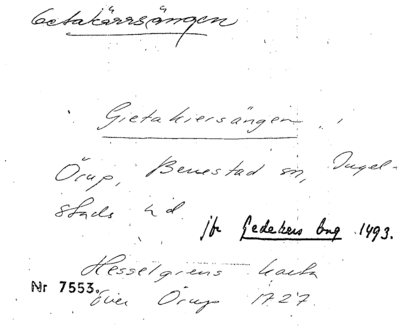 Getakärrsängen
Gietakiersängen
Örup, Benestad sn, Ingel-
stads hd
jfr Gedekers Eng 1493.
Hesselgrens karta
Nr 7553.
över Örup 1727.